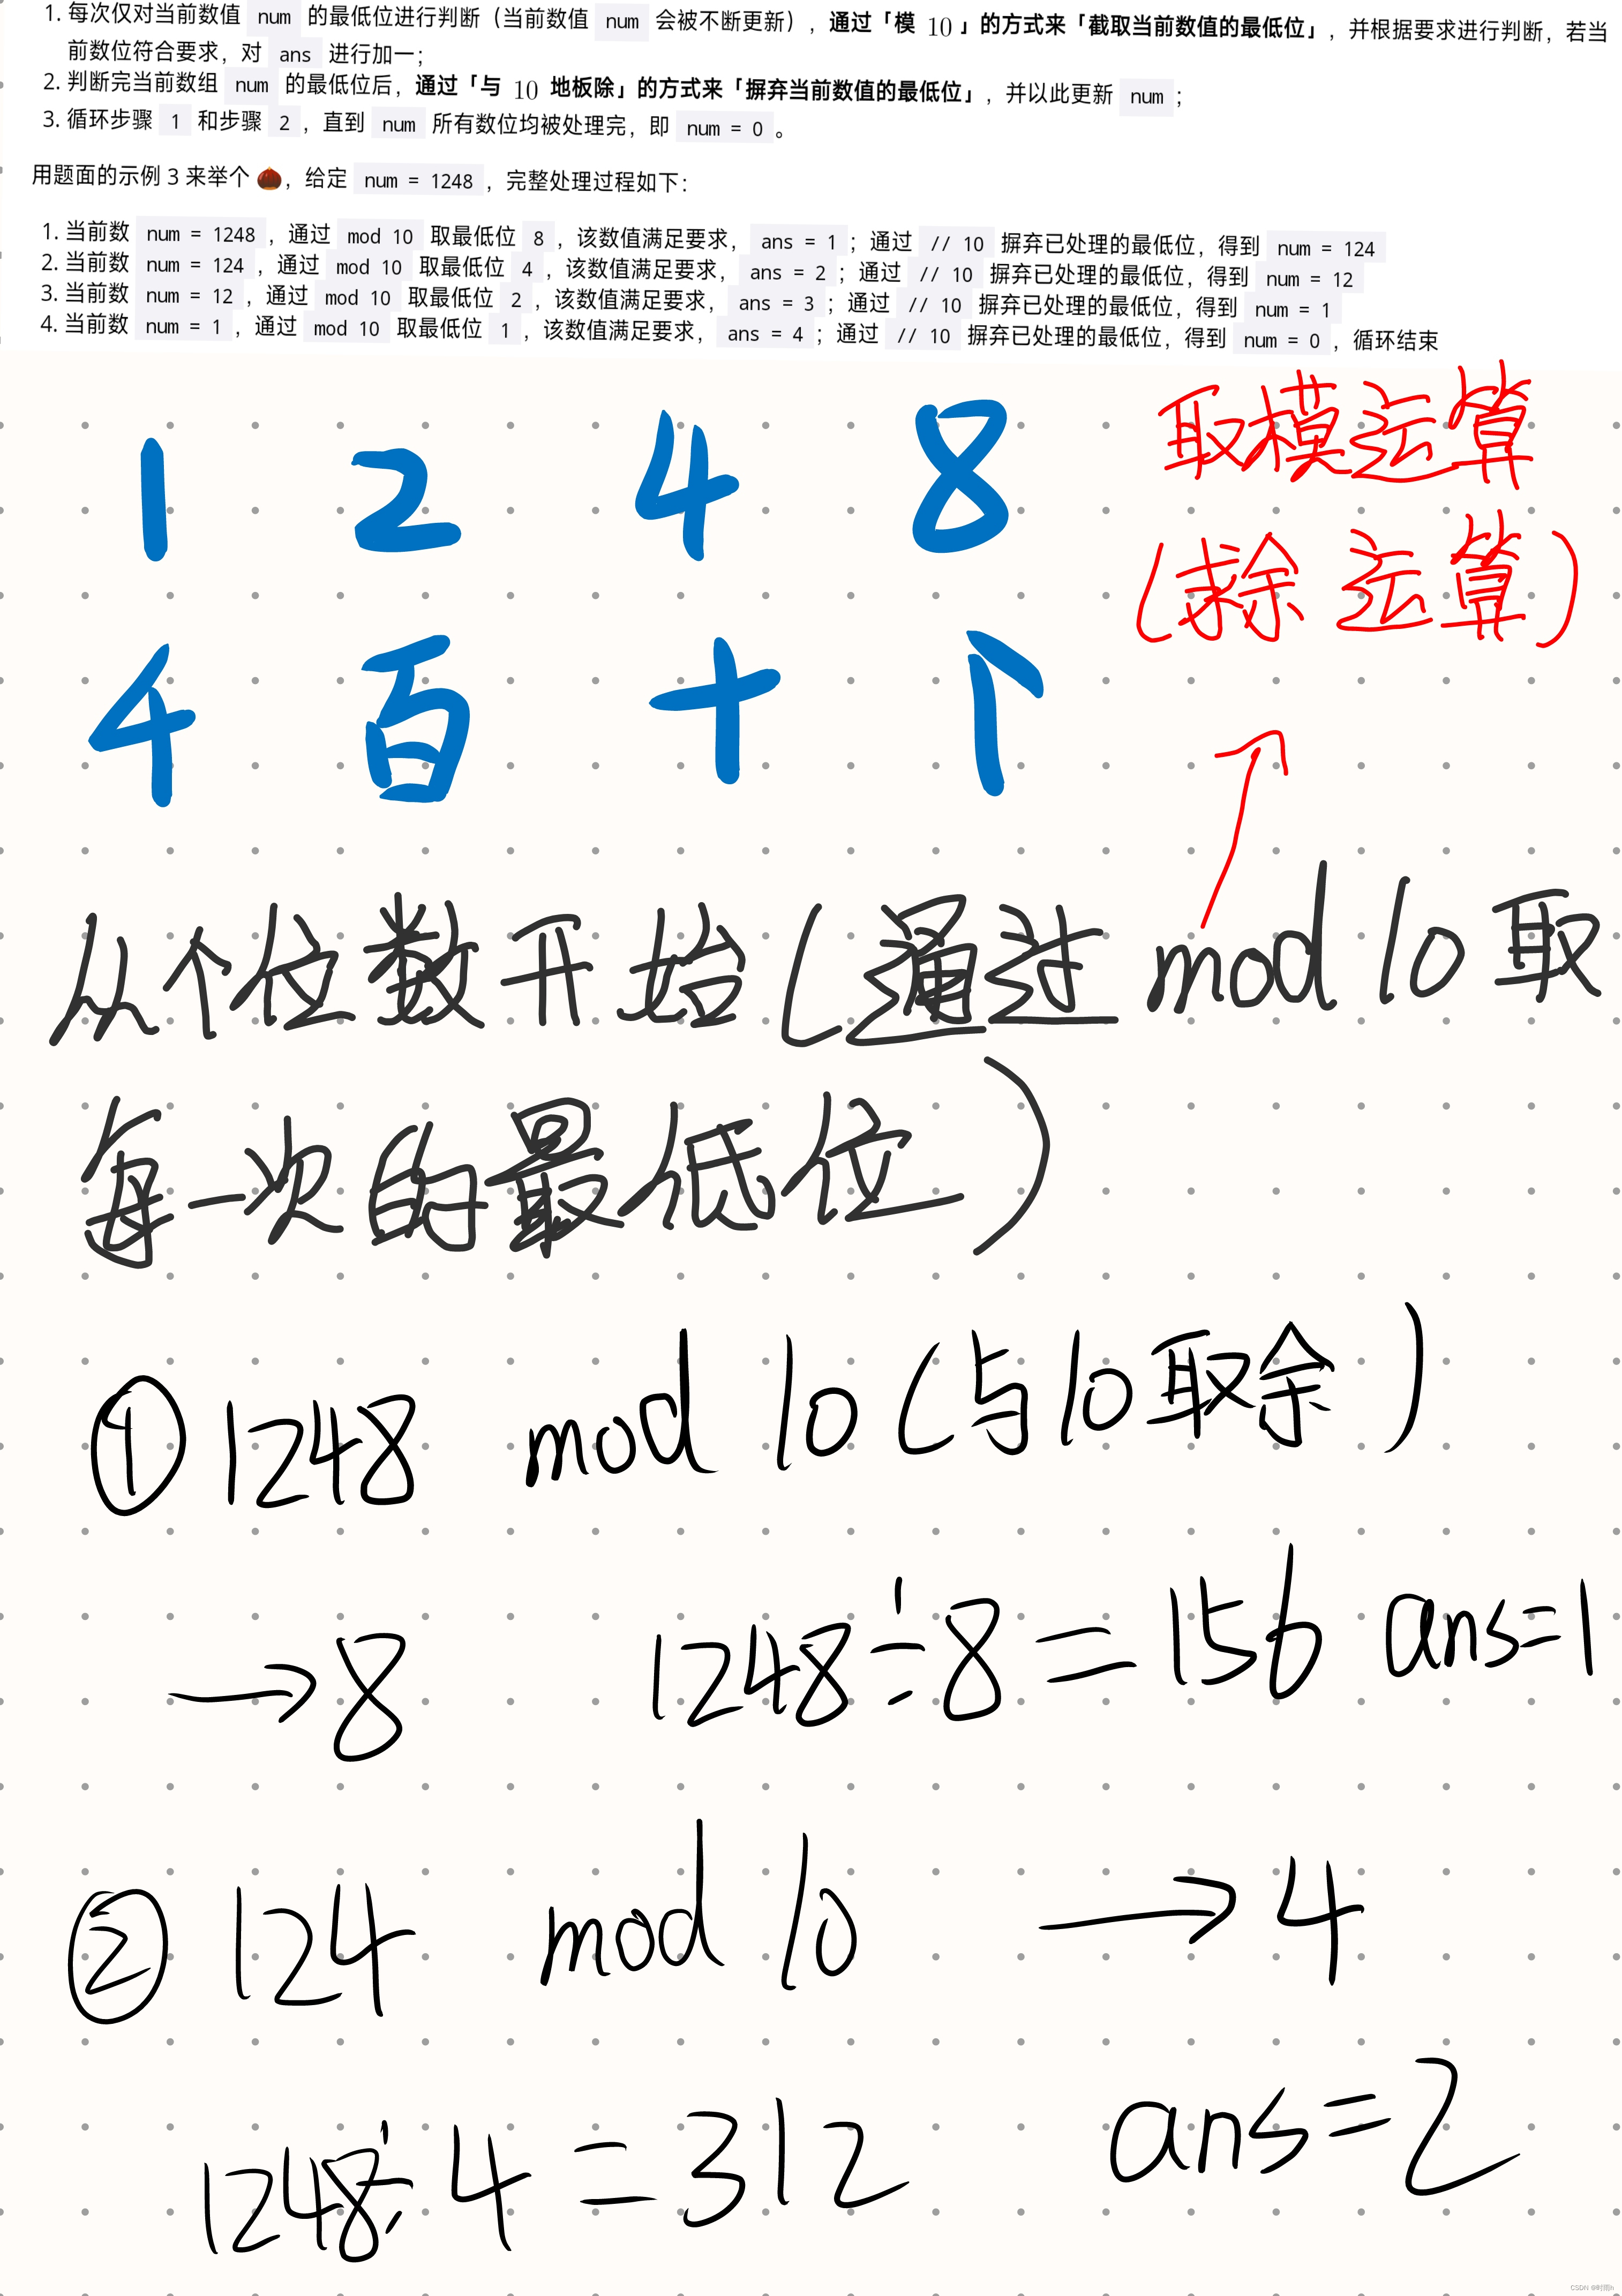 1. 每次仅对当前数值 num 的最低位进行判断（当前数值 num 会被不断更新），通过「模 10 」的方式来「截取当前数值的最低位」，并根据要求进行判断，若当
前数位符合要求，对 ans 进行加一；
2. 判断完当前数组 num 的最低位后，通过「与 10 地板除」的方式来「摒弃当前数值的最低位」，并以此更新 num ；
3. 循环步骤 1 和步骤 2 ，直到 num 所有数位均被处理完，即 num = 0 。
用题面的示例 3 来举个 🌰，给定 num = 1248 ，完整处理过程如下：
1. 当前数 num = 1248 ，通过 mod 10 取最低位 8 ，该数值满足要求， ans = 1 ；通过 // 10 摒弃已处理的最低位，得到 num = 124
2. 当前数 num = 124 ，通过 mod 10 取最低位 4 ，该数值满足要求， ans = 2 ；通过 // 10 摒弃已处理的最低位，得到 num = 12
3. 当前数 num = 12 ，通过 mod 10 取最低位 2 ，该数值满足要求， ans = 3 ；通过 // 10 摒弃已处理的最低位，得到 num = 1
4. 当前数 num = 1 ，通过 mod 10 取最低位 1 ，该数值满足要求， ans = 4 ；通过 // 10 摒弃已处理的最低位，得到 num = 0 ，循环结束
取模运算
1 2 4 8
(求余 运算)
百 十
从个位数开始(通过 mod 10 取
每一次的最低位)
① 1248 mod 10 (与10取余)
→8 1248÷8=156 ans=1
② 124 mod 10 →4
1248÷4=312 ans=2
CSDN @时雨h